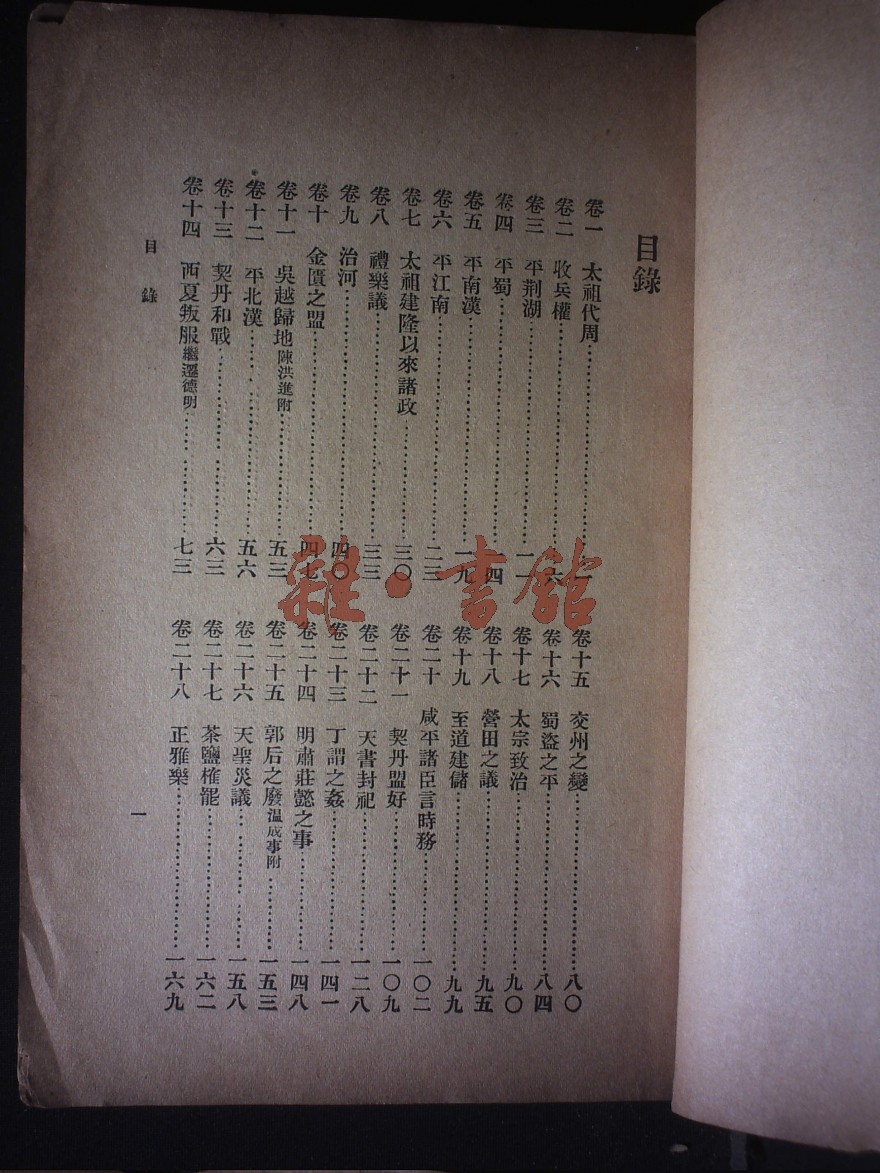 目錄
卷一　太祖代周……一
卷二　收兵權……六
卷三　平荆湖……一一
卷四　平蜀……一四
卷五　平南漢……一九
卷六　平江南……二三
卷七　太祖建隆以來諸政……三〇
卷八　禮樂議……三三
卷九　治河……四〇
卷十　金匱之盟……四七
卷十一　吳越歸地陳洪進附……五三
卷十二　平北漢……五六
卷十三　契丹和戰……六三
卷十四　西夏叛服繼遷德明……七三
卷十五　交州之變……八〇
卷十六　蜀盜之平……八四
卷十七　太宗致治……九〇
卷十八　營田之議……九五
卷十九　至道建儲……九九
卷二十　咸平諸臣言時務……一〇二
卷二十一　契丹盟好……一〇九
卷二十二　天書封祀……一二八
卷二十三　丁謂之姦……一四一
卷二十四　明肅莊懿之事……一四八
卷二十五　郭后之廢溫成事附……一五三
卷二十六　天聖災議……一五八
卷二十七　茶鹽榷罷……一六二
卷二十八　正雅樂……一六九
目錄
一
雜·書館